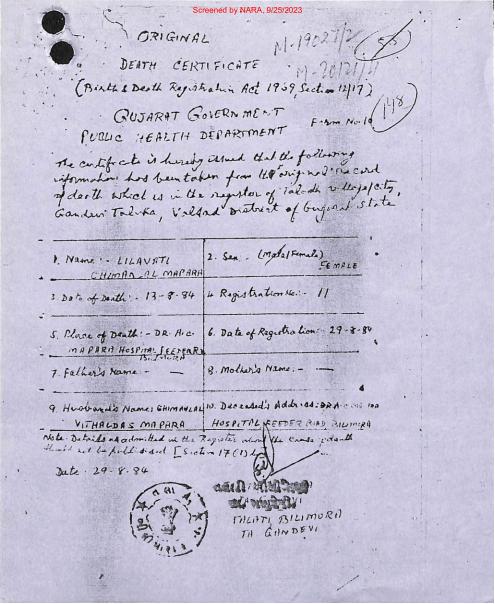 Screened by NARA, 9/25/2023
ORIGINAL
M-19027/2
DEATH CERTIFICATE
(Births & Death Registration Act 1969, Section 12/17)
148
GUJARAT GOVERNMENT
Form No. 10
PUBLIC HEALTH DEPARTMENT
The certificate is hereby issued that the following
information has been taken from the original record
of death which is in the register of Taladh village/city,
Gandevi Taluka, Valsad District of Gujarat State
1. Name:- LILAVATI
CHIMANLAL MAPARA
2. Sex:- (Male/Female)
FEMALE
3. Date of Death:- 13-8-84
4. Registration No.:- 11
5. Place of Death:- DR. A.C.
MAPARA HOSPITAL FEEDER RD
BILIMORA
6. Date of Registration:- 29-8-84
7. Father's Name:- —
8. Mother's Name:- —
9. Husband's Name: CHIMANLAL
VITHALDAS MAPARA
10. Deceased's Address: DR A.C.
HOSPITAL FEEDER ROAD BILIMORA
Note: Details as admitted in the Register when the cause of death
should not be publicised [Section 17(1)]
Date: 29-8-84
TALATI BILIMORA
TA GANDEVI